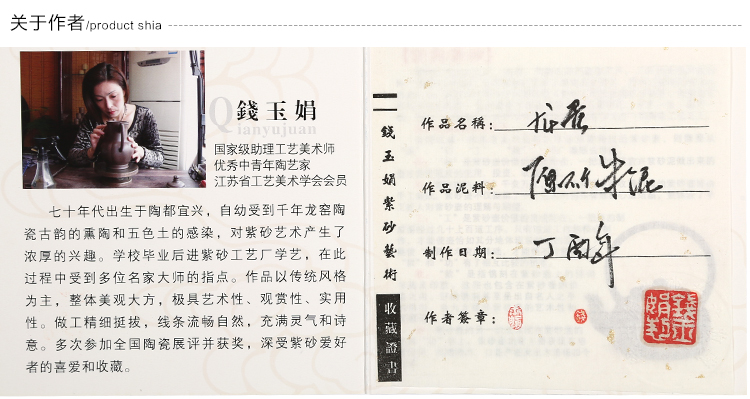 关于作者/product shia
錢玉娟
Qianyujuan
国家级助理工艺美术师
优秀中青年陶艺家
江苏省工艺美术学会会员
七十年代出生于陶都宜兴，自幼受到千年龙窑陶
瓷古韵的熏陶和五色土的感染，对紫砂艺术产生了
浓厚的兴趣。学校毕业后进紫砂工艺厂学艺，在此
过程中受到多位名家大师的指点。作品以传统风格
为主，整体美观大方，极具艺术性、观赏性、实用
性。做工精细挺拔，线条流畅自然，充满灵气和诗
意。多次参加全国陶瓷展评并获奖，深受紫砂爱好
者的喜爱和收藏。
錢玉娟紫砂藝術
收藏證書
作品名稱：
作品泥料：
制作日期：
作者簽章：
錢玉娟印